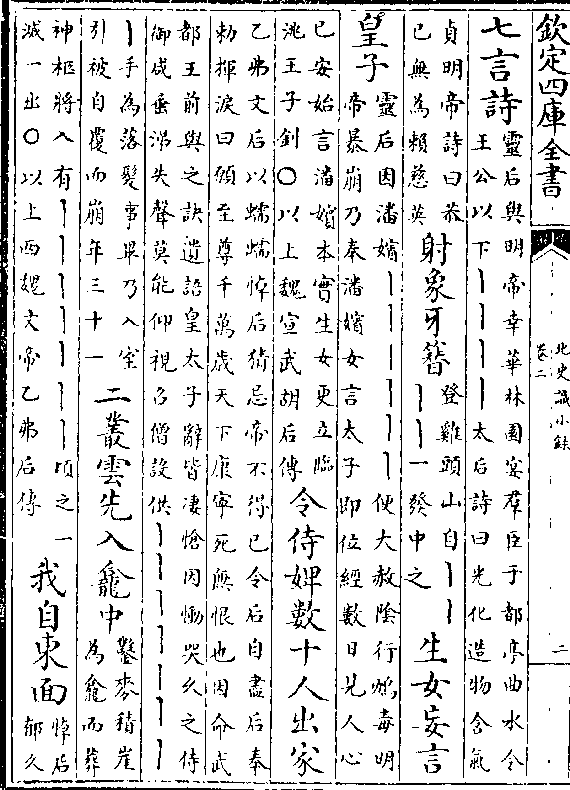 欽定四庫全書
北史識小錄
卷二
二
七言詩靈后與明帝幸華林園宴群臣于都亭曲水令
王公以下丨丨丨太后詩曰光化造物含氣
貞明帝詩曰恭
已無為賴慈英射象牙簪登雞頭山自丨丨
丨丨一發中之生女妄言
皇子靈后因潘嬪丨丨丨丨丨丨便大赦陰行鴆毒明
帝暴崩乃奉潘嬪女言太子即位經數日見人心
已安始言潘嬪本實生女更立臨
洮王子釗〇以上魏宣武胡后傳令侍婢數十人出家
乙弗文后以蠕蠕悼后猜忌帝不得已令后自盡后奉
勅揮淚曰願至尊千萬歲天下康寧死無恨也因命武
都王前與之訣遺語皇太子辭皆凄愴因慟哭久之侍
御咸垂涕失聲莫能仰視召僧設供丨丨丨丨丨丨
丨手為落髮事畢乃入室
引被自覆而崩年三十一二叢雲先入龕中鑿麥積崖
為龕而葬
神柩將入有丨丨丨丨丨丨頃之一
滅一出〇以上西魏文帝乙弗后傳我自東面悼后
郁久